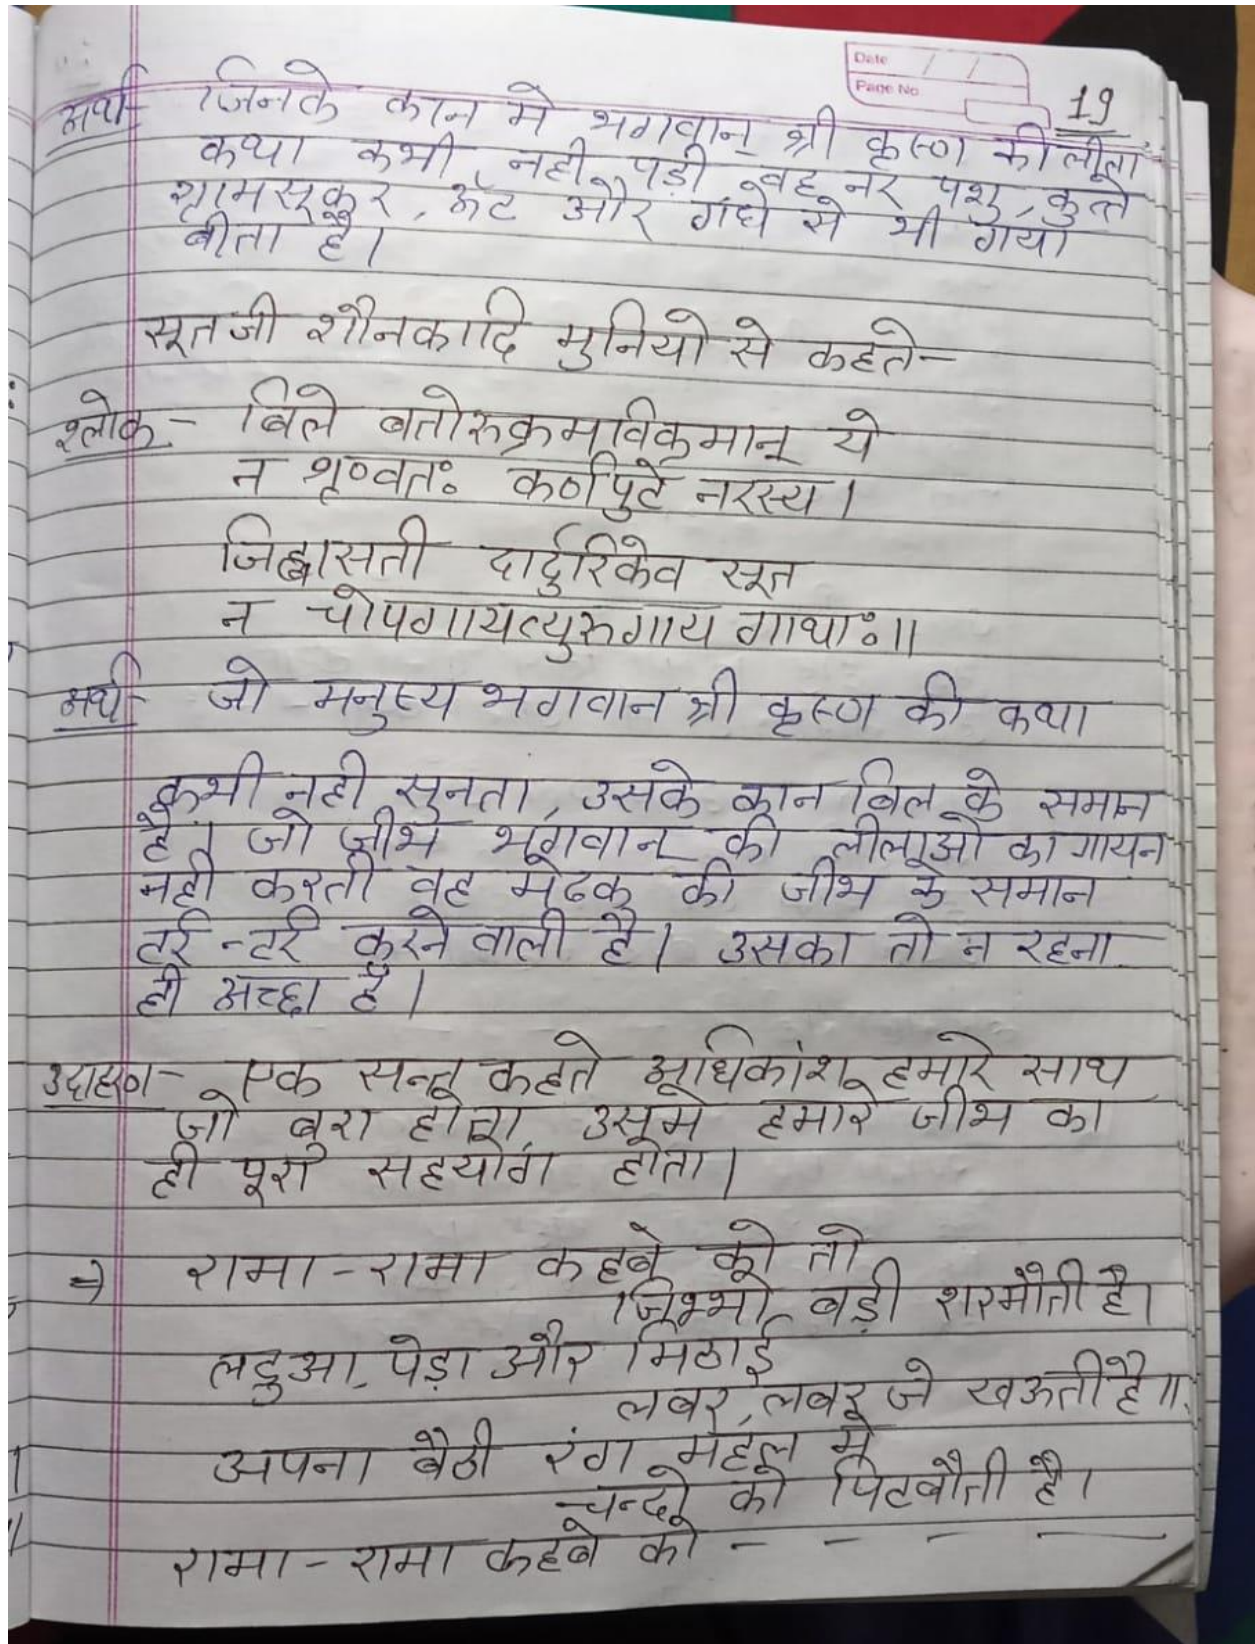 Date / /
Page No
19
अर्थ- जिनके कान मे भगवान् श्री कृष्ण की लीला
कथा कभी नही पड़ी वह नर पशु, कुत्ते
ग्रामसूकर, ऊँट और गधे से भी गया
बीता है।
सूतजी शौनकादि मुनियो से कहते-
श्लोक- बिले बतोरुक्रमविक्रमान् ये
न शृण्वतः कर्णपुटे नरस्य।
जिह्वासती दार्दुरिकेव सूत
न चोपगायत्युरुगाय गाथाः॥
अर्थ- जो मनुष्य भगवान श्री कृष्ण की कथा
कभी नही सुनता, उसके कान बिल के समान
है। जो जीभ भगवान की लीलाओ का गायन
नही करती वह मेढक की जीभ के समान
टर्र-टर्र करने वाली है। उसका तो न रहना
ही अच्छा है।
उदाहरण- एक सन्त कहते अधिकांश हमारे साथ
जो बुरा होता, उसमे हमारे जीभ का
ही पूरा सहयोग होता।
⇒ रामा-रामा कहबे को तो
जिभ्भो बड़ी शरमौती है।
लडुआ, पेड़ा और मिठाई
लबर, लबर जे खऊती है॥
अपना बैठी रंग महल मे
चन्दो को पिटबौती है।
रामा-रामा कहबे को - - - —